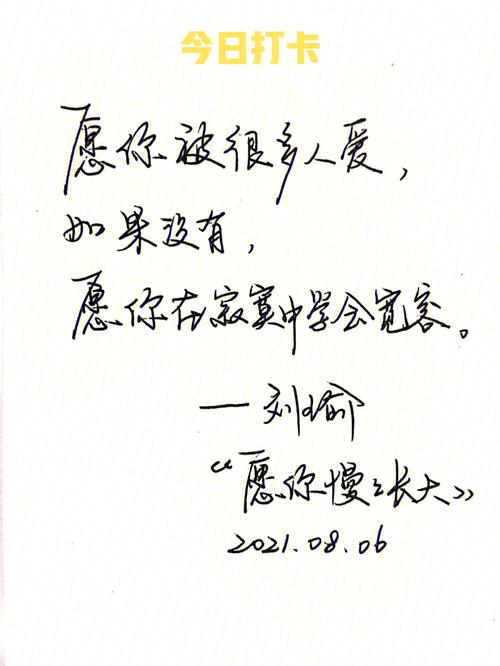 今日打卡
愿你被很多人爱，
如果没有，
愿你在寂寞中学会宽容。
——刘瑜
“愿你慢々长大》
2021.08.06